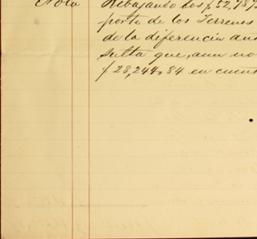 Nota Rebajando los $52,787
porte de los Terrenos
de la diferencia ant
sulta que, aun no
$28,244,84 en cuent